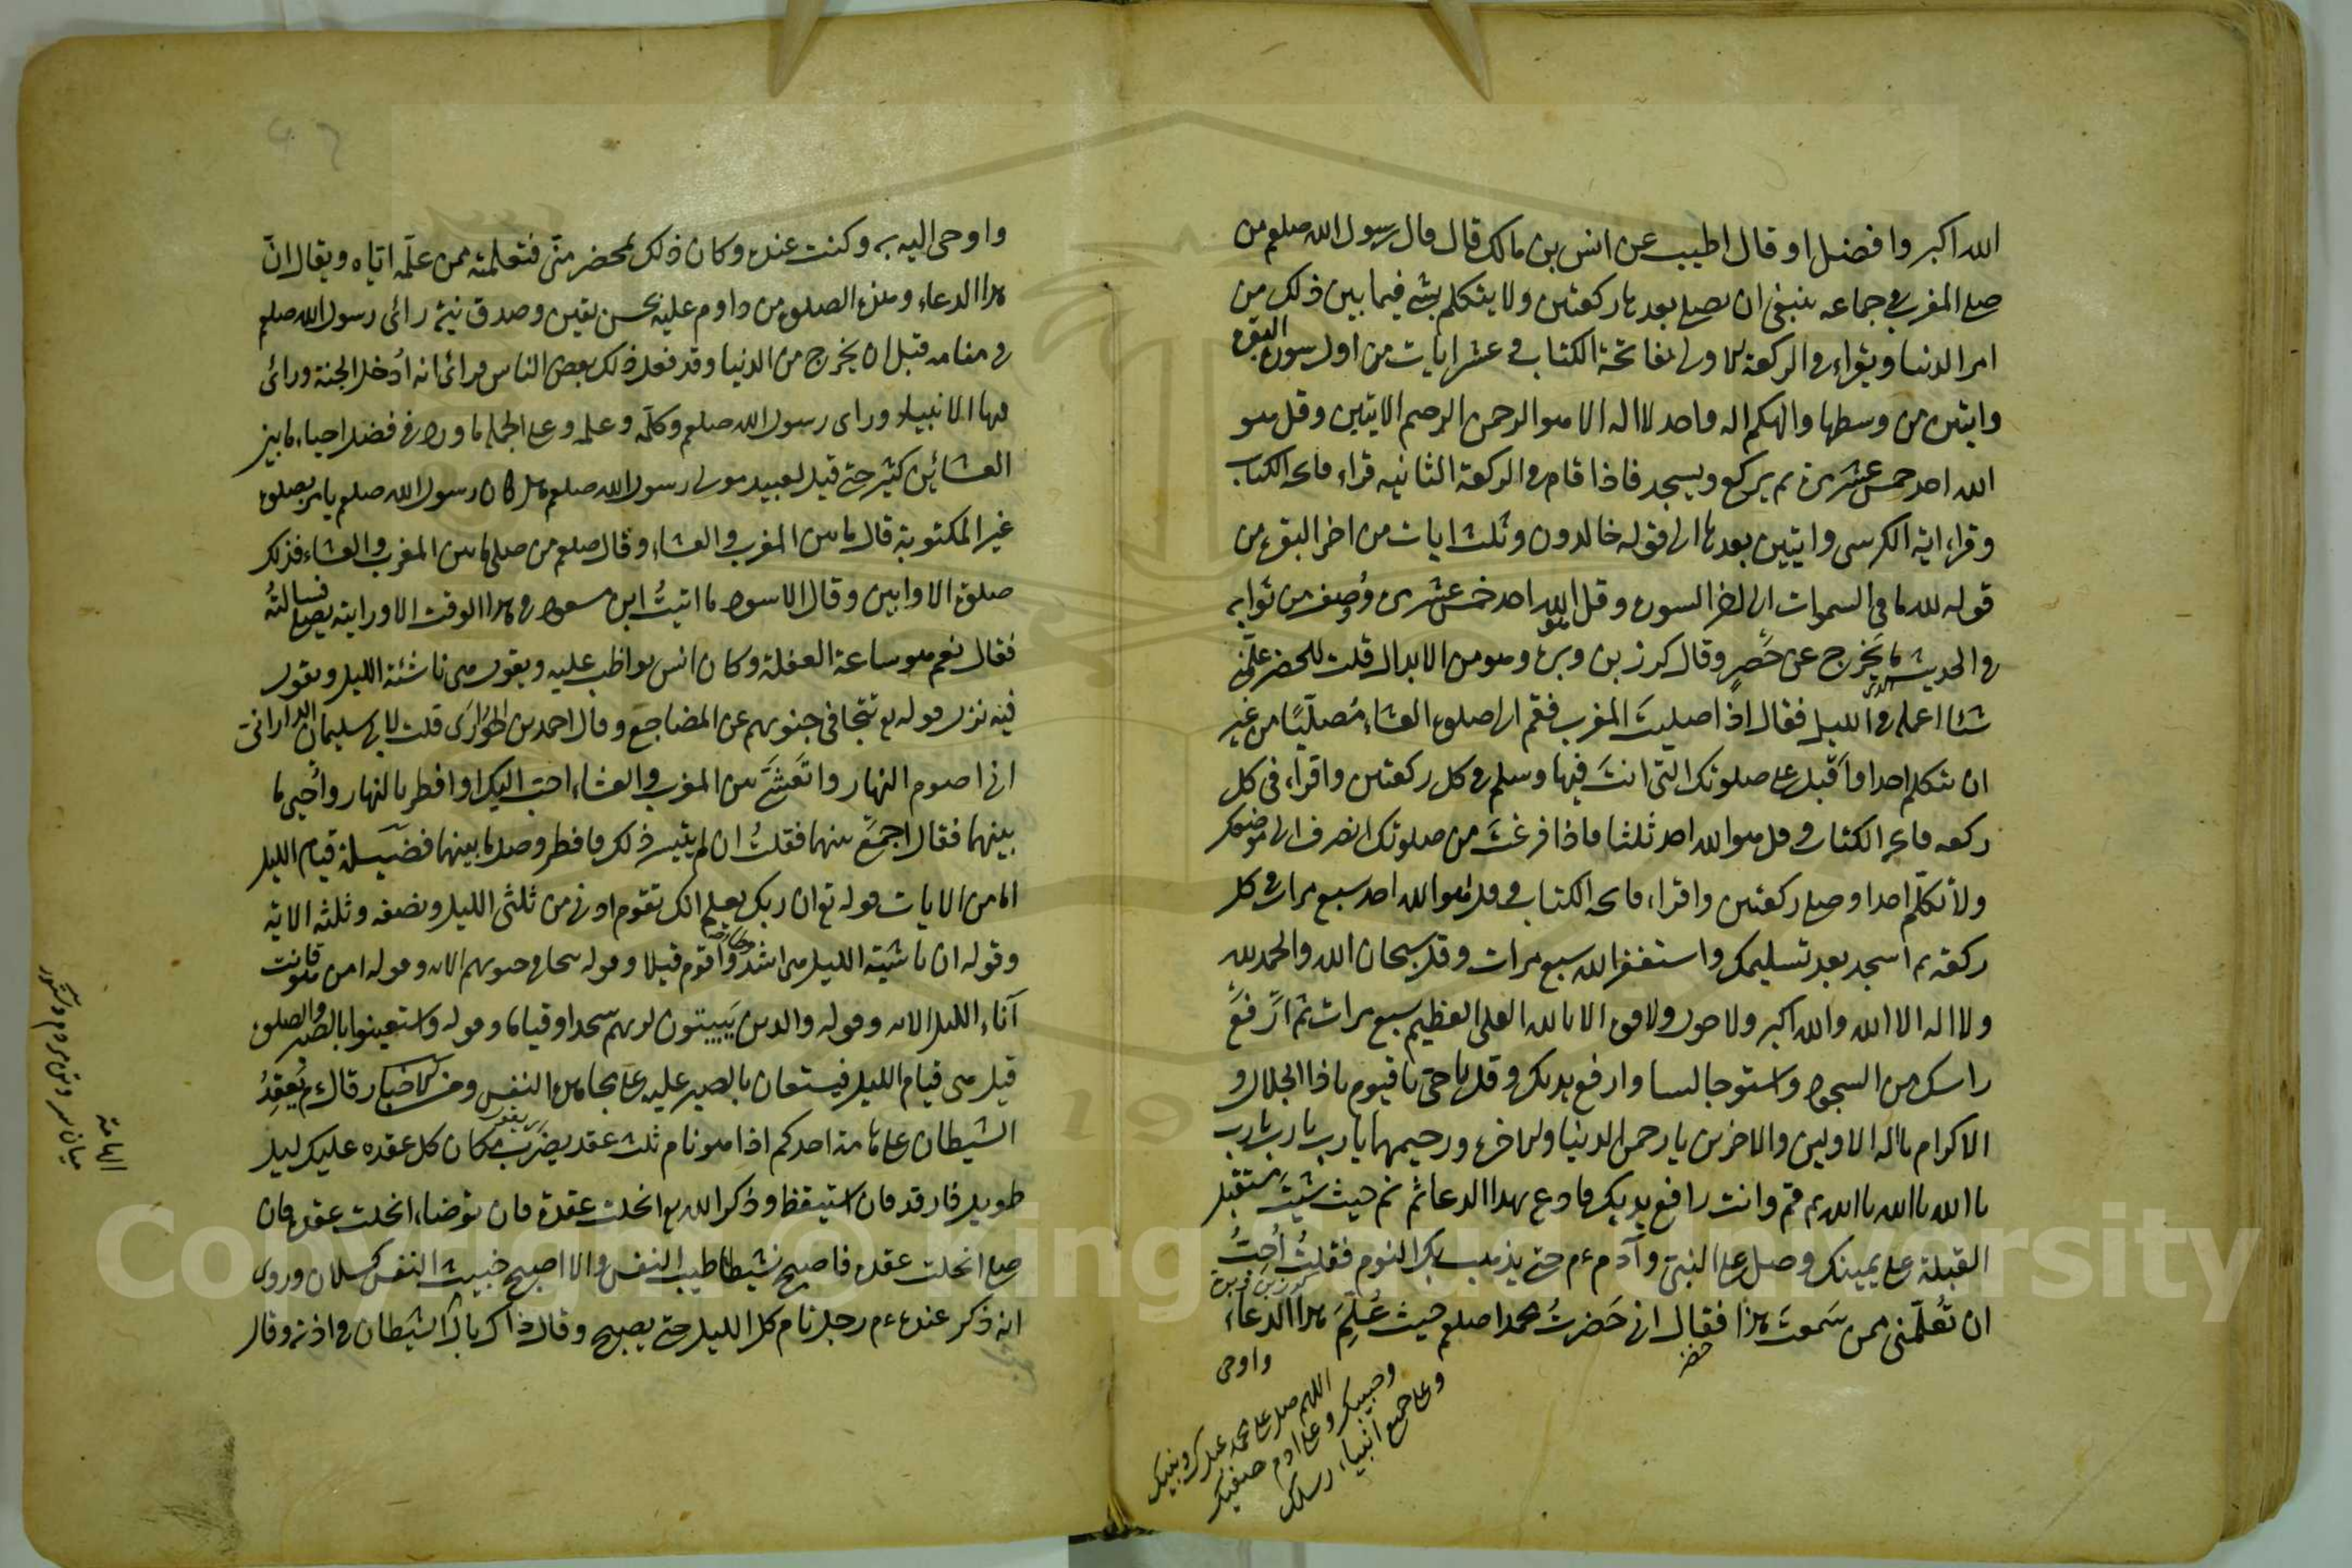 الله اكبر وافضل او قال اطيب عن انس بن مالك قال قال رسول الله صلعم من
صلى المغرب في جماعه ينبغى ان يصلى بعدها ركعتين ولا يتكلم بشئ فيما بين ذلك من
امر الدنيا ويقراء في الركعة الاولى بفاتحة الكتاب و عشر ايات من اول سورة البقرة
وايتين من وسطها والهكم اله واحد لا اله الا هو الرحمن الرحيم الايتين وقل هو
الله احد خمس عشرة مرة ثم يركع ويسجد فاذا قام في الركعة الثانيه قراء فاتحة الكتاب
وقراء اية الكرسى وايتين بعدها الى قوله خالدون وثلث ايات من اخر البقرة من
قوله لله ما في السموات الى اخر السورة وقل هو الله احد خمس عشرة مرة وصف من ثوابه
في الحديث ما يخرج عن حصر وقال كرز بن وبرة وهو من الابدال قلت للخضر علمنى
شئا اعمله في الليل فقال اذا صليت المغرب فقم الى صلوة العشاء مصليا من غير
ان تتكلم احدا واقبل على صلوتك التى انت فيها وسلم في كل ركعتين واقراء فى كل
ركعه فاتحة الكتاب و قل هو الله احد ثلثا فاذا فرغت من صلوتك انصرف الى موضعك
ولا تكلم احدا وصل ركعتين واقراء فاتحة الكتاب و قل هو الله احد سبع مرات في كل
ركعة ثم اسجد بعد تسليمك واستغفر الله سبع مرات وقل سبحان الله والحمد لله
ولا اله الا الله والله اكبر ولا حول ولا قوة الا بالله العلى العظيم سبع مرات ثم ارفع
راسك من السجود واستو جالسا وارفع يديك وقل يا حى يا قيوم يا ذا الجلال و
الاكرام يا اله الاولين والاخرين يا رحمن الدنيا والاخرة ورحيمهما يا رب يا رب يا رب
يا الله يا الله يا الله ثم قم وانت رافع يديك وادع بهذا الدعا ثم نم حيث شئت مستقبل
القبلة على يمينك وصل على النبى وآدم ءم حتى يذهب بك النوم فقلت احب
كرز بن وبرة
ان تعلمنى ممن سمعت هذا فقال انى حضرت محمدا صلعم حيث علم هذا الدعاء
خضر
واوحى
اللهم صل على محمد عبدك ونبيك
وحبيبك وعلى ادم صفيك
وعلى جميع انبياء رسلك
واوحى اليه به وكنت عنده وكان ذلك بمحضر منى فتعلمته ممن علمه اياه ويقال ان
هذا الدعاء وهذه الصلوة من داوم عليه بحسن يقين وصدق نية رائ رسول الله صلعم
في منامه قبل ان يخرج من الدنيا وقد فعل ذلك بعض الناس فرائ انه ادخل الجنة ورائ
فيها الانبياء وراى رسول الله صلعم وكلمه وعلمه وعلى الجملة ما ورد في فضل احياء ما بين
العشائين كثير حتى قيل لعبيد مولى رسول الله صلعم هل كان رسول الله صلعم يامر بصلوة
غير المكتوبة قال ما بين المغرب والعشاء وقال صلعم من صلى ما بين المغرب والعشاء فذلك
صلوة الاوابين وقال الاسود ما اتيت ابن مسعود في هذا الوقت الا ورايته يصلى فسالته
فقال نعم هو ساعة الغفلة وكان انس يواظب عليه ويقول هى ناشئة الليل ويقول
فيه نزل قوله تع تتجافى جنوبهم عن المضاجع وقال احمد بن الحوارى قلت لابى سليمان الدارانى
انى اصوم النهار واتعشى بين المغرب والعشاء احب اليك او افطر بالنهار واحيى ما
بينهما فقال اجمع بينهما فقلت ان لم يتيسر ذلك فافطر وصل ما بينهما فضيلة قيام الليل
اما من الايات قوله تع ان ربك يعلم انك تقوم ادنى من ثلثى الليل ونصفه وثلثه الاية
وقوله ان ناشئة الليل هى اشد وطأ واقوم قيلا وقوله تتجافى جنوبهم الايه وقوله امن هو قانت
آناء الليل الايه وقوله والذين يبيتون لربهم سجدا وقياما وقوله واستعينوا بالصبر والصلوة
قيل هى قيام الليل فيستعان بالصبر عليه على مجاهدة النفس ومن الاخبار قال ءم يعقد
الشيطان على هامة احدكم اذا هو نام ثلث عقد يضرب مكان كل عقده عليك ليل
طويل فارقد فان استيقظ وذكر الله تع انحلت عقدة فان توضاء انحلت عقدة فان
صلى انحلت عقدة فاصبح نشيطا طيب النفس والا اصبح خبيث النفس كسلان وروى
انه ذكر عنده ءم رجل نام كل الليل حتى يصبح وقال ذاك بال الشيطان في اذنه وقال
الهامة